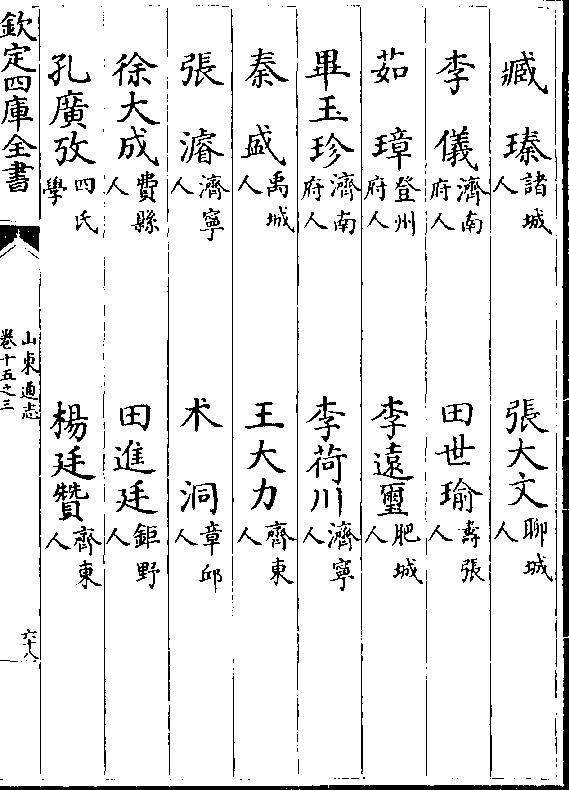 臧瑧諸城人　張大文聊城人
李儀濟南府人　田世瑜壽張人
茹璋登州府人　李遠璽肥城人
畢玉珍濟南府人　李荷川濟寧人
秦盛禹城人　王大力齊東人
張濬濟寧人　术洞章邱人
徐大成費縣人　田進廷鉅野人
孔廣攷四氏學　楊廷贊齊東人
欽定四庫全書　山東通志卷十五之三　六十八